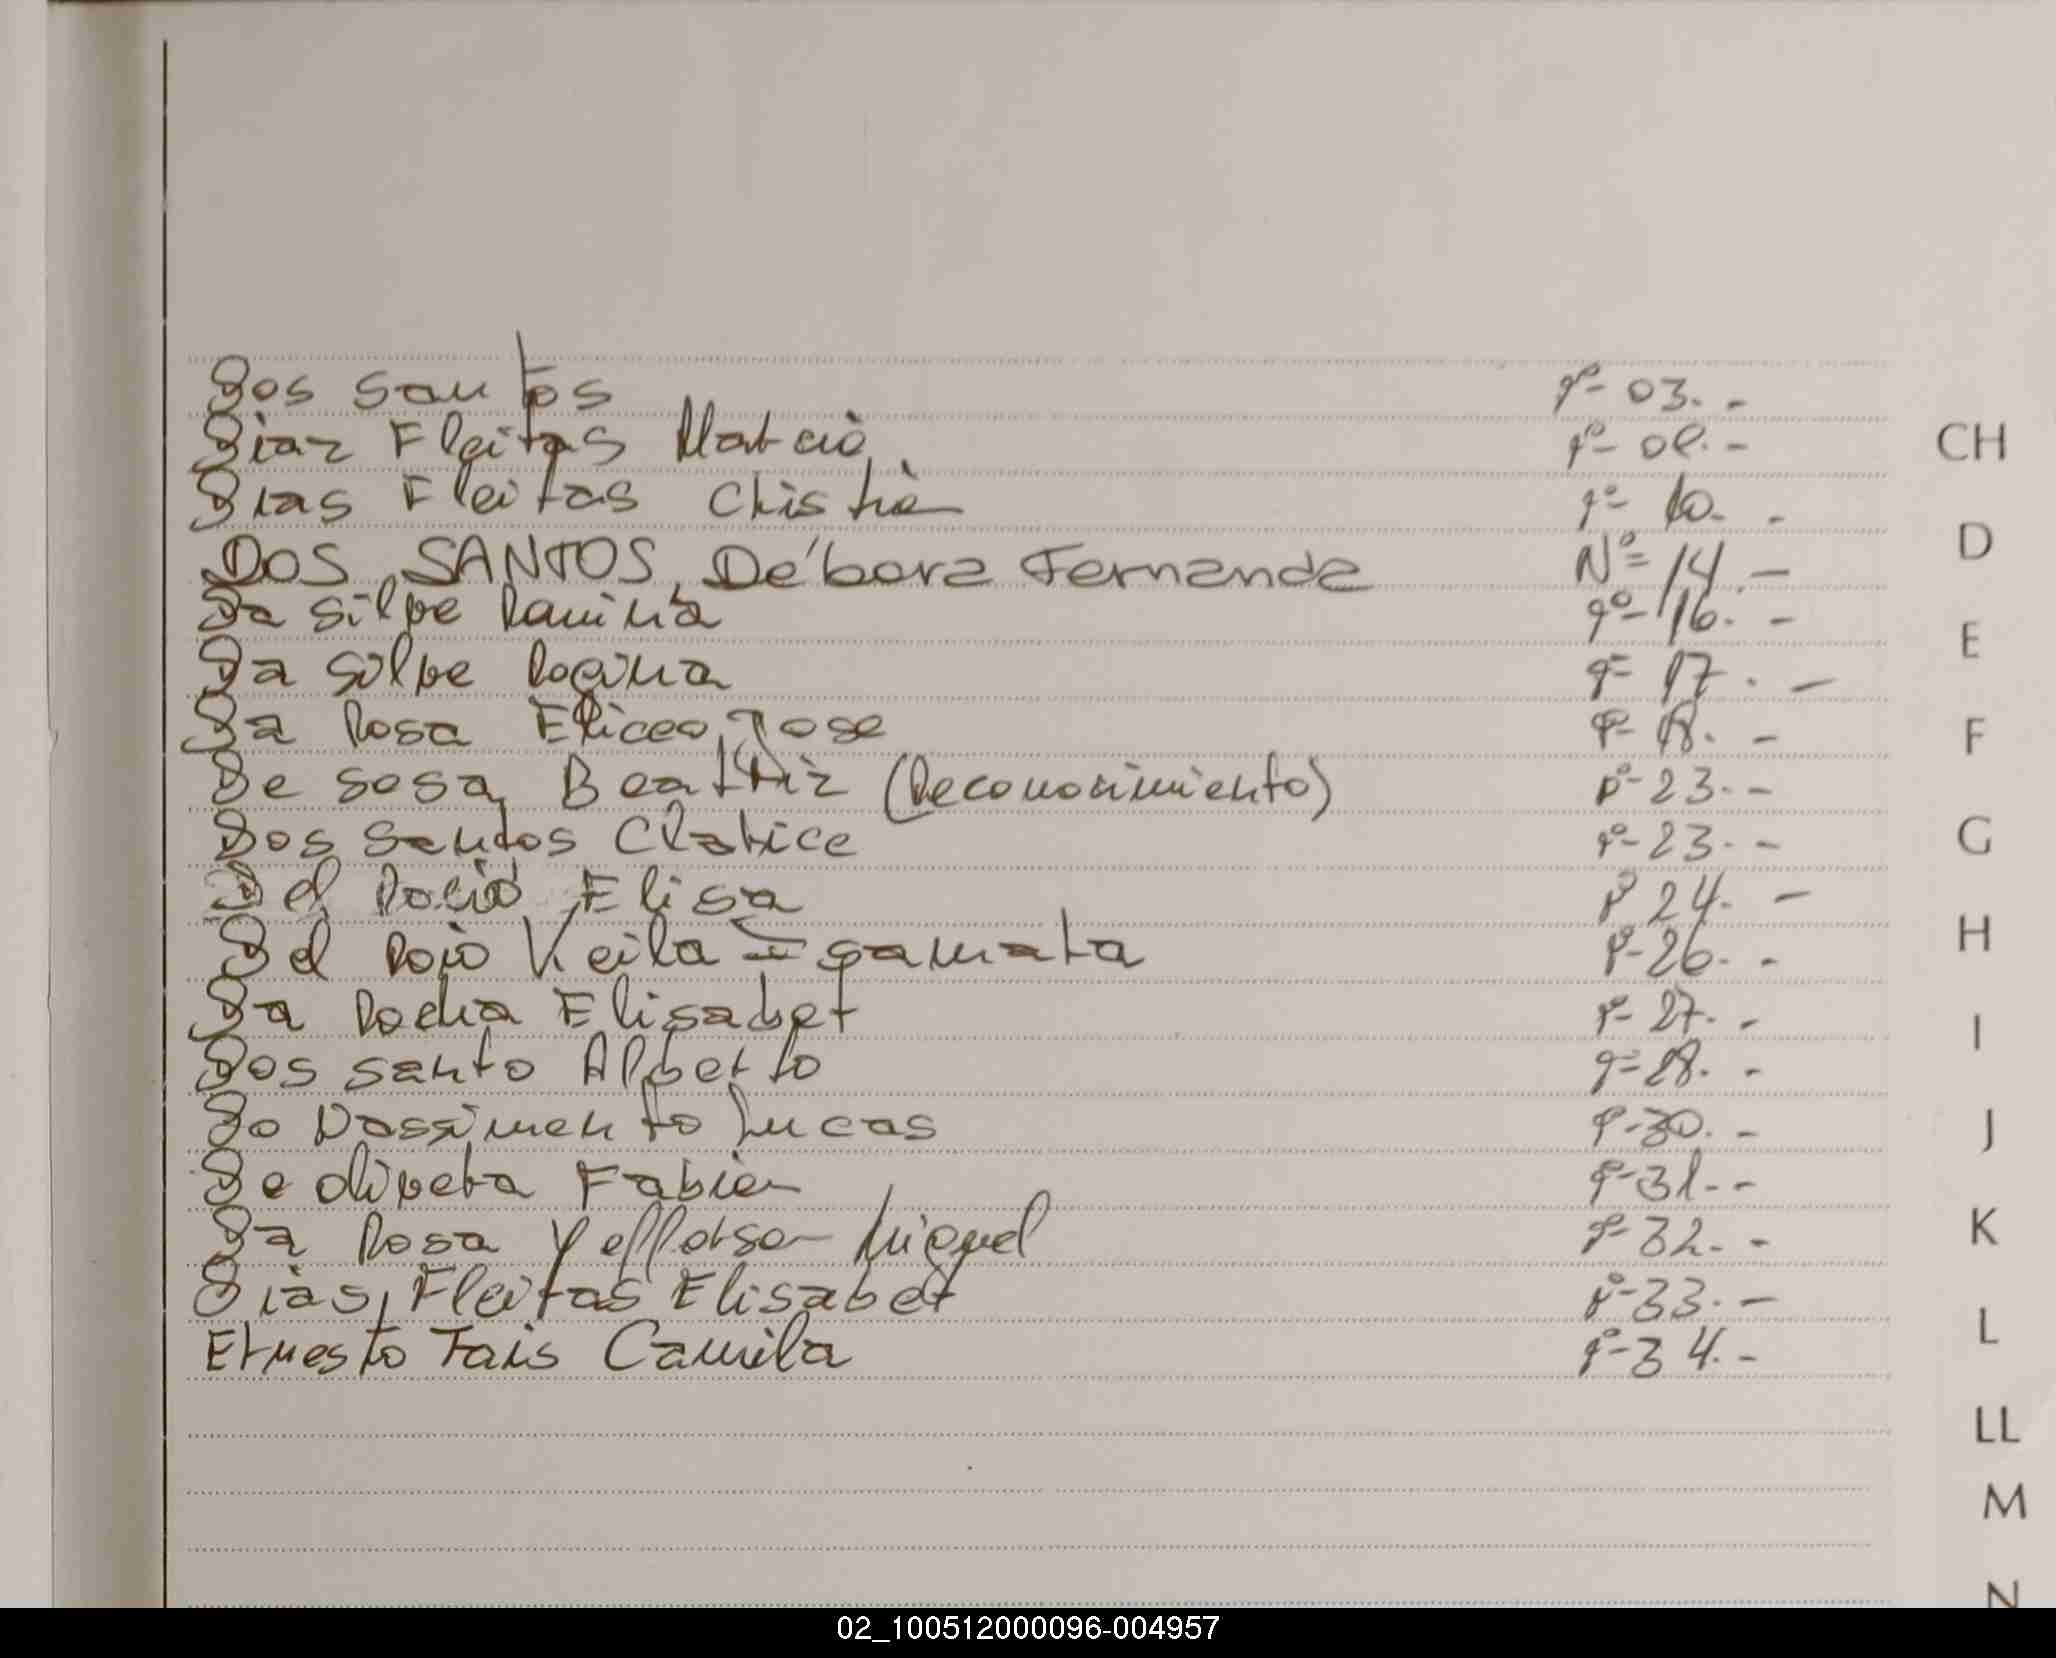 Dos santos nº- 03. -
Diaz Fleitas Marcio nº- 08. -
Dias Fleitas Christian nº- 10. -
DOS SANTOS, Débora Fernanda Nº= 14. -
Da silva Ramina nº- 16. -
Da silva Regina nº- 17. -
Da Rosa Eliceo Jose nº- 18. -
De sosa, Beatriz (Reconocimiento) nº- 23. -
Dos Santos Clarice nº- 23. -
Del Rocio Elisa nº 24. -
Del Keila nº- 26. -
Da Rocha Elisabet nº- 27. -
Dos santo Alberto nº= 28. -
Do Nassimento Lucas nº- 30. -
De olivera Fabian nº- 31. -
Da Rosa Yefferson Miguel nº- 32. -
Dias, Fleitas Elisabet nº- 33. -
Ernesto Tais Camila nº- 34. -
CH
D
E
F
G
H
I
J
K
L
LL
M
N
02_100512000096-004957